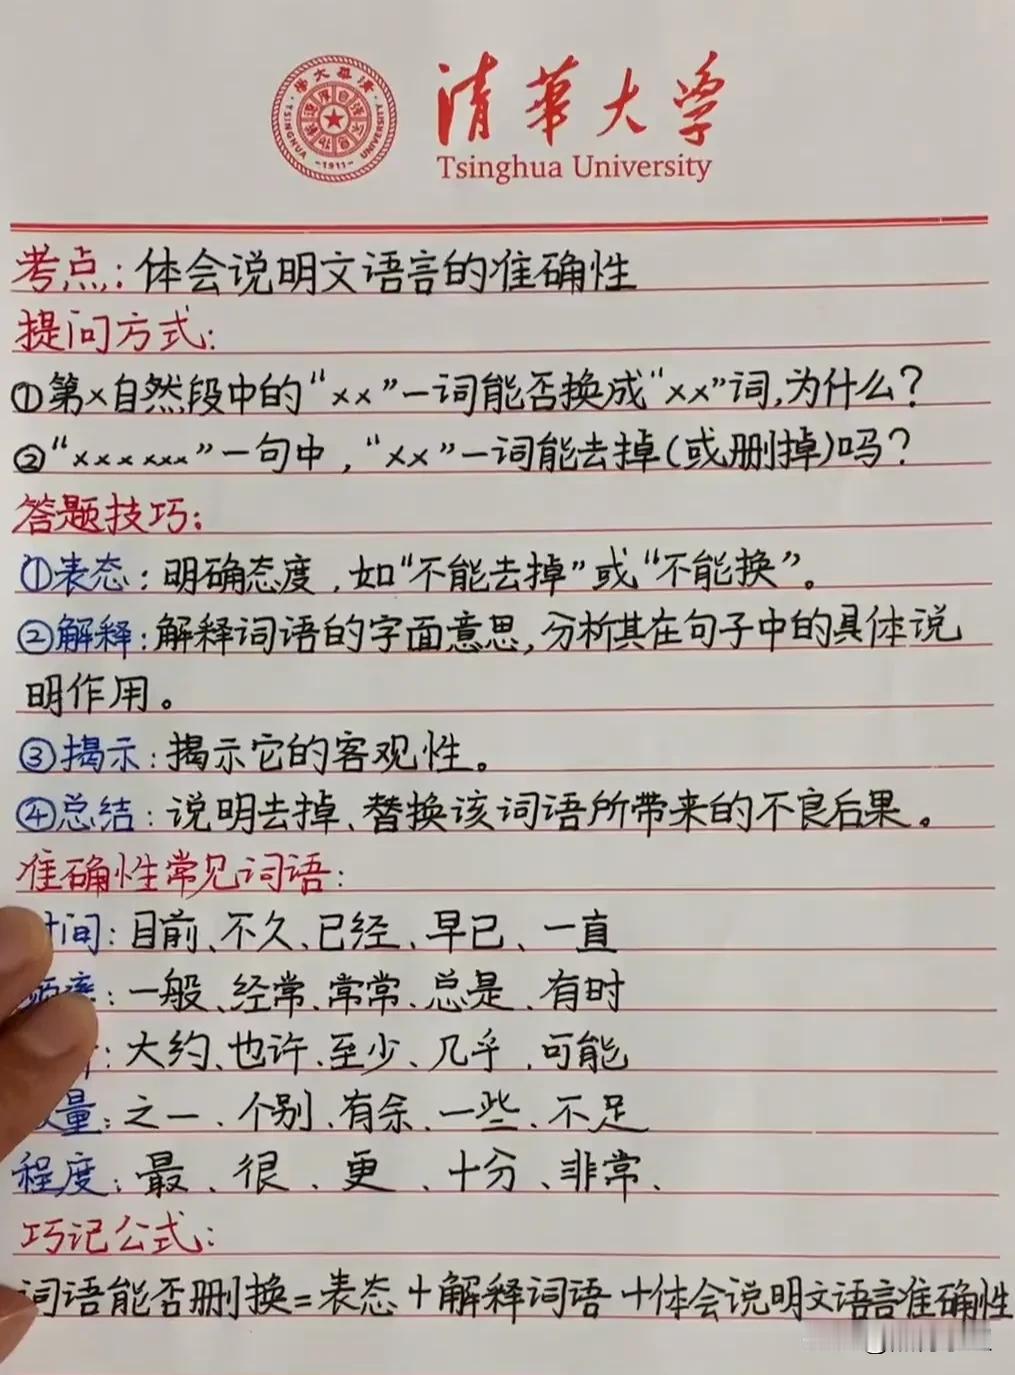 清華大学
Tsinghua University
TSINGHUA UNIVERSITY
-1911-
考点:体会说明文语言的准确性
提问方式:
①第×自然段中的“××”一词能否换成“××”词,为什么?
②“××××××”一句中,“××”一词能去掉(或删掉)吗?
答题技巧:
①表态:明确态度,如“不能去掉”或“不能换”。
②解释:解释词语的字面意思,分析其在句子中的具体说
明作用。
③揭示:揭示它的客观性。
④总结:说明去掉、替换该词语所带来的不良后果。
准确性常见词语:
时间:目前、不久、已经、早已、一直
频率:一般、经常、常常、总是、有时
:大约、也许、至少、几乎、可能
量:之一、个别、有余、一些、不足
程度:最、很、更、十分、非常、
巧记公式:
词语能否删换=表态+解释词语+体会说明文语言准确性